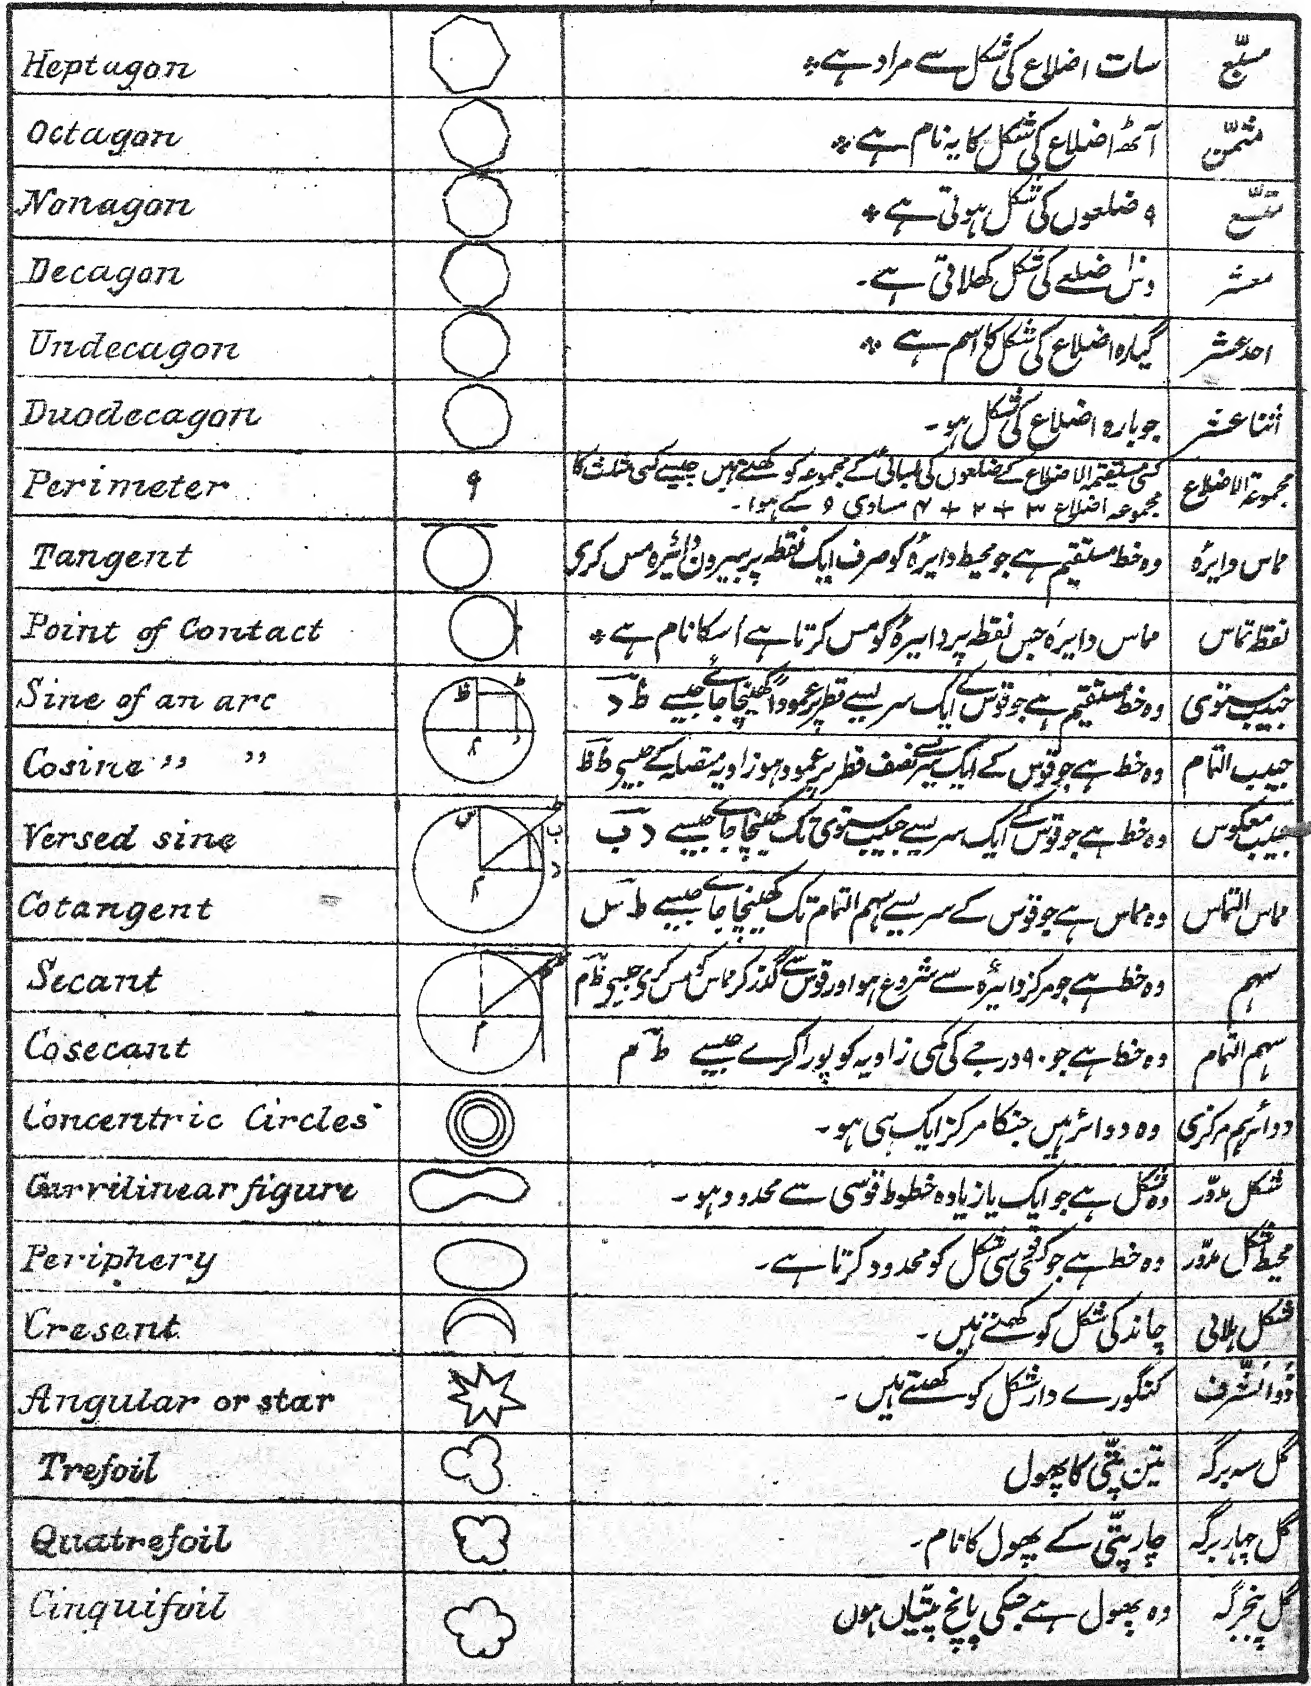 Heptagon سات اضلاع کی شکل سے مراد ہے * مسبّع
Octagon آٹھ اضلاع کی شکل کا یہ نام ہے * مثمّن
Nonagon ۹ ضلعوں کی شکل ہوتی ہے * متسّع
Decagon دس ضلعے کی شکل کھلاتی ہے۔ معشر
Undecagon گیارہ اضلاع کی شکل کا اسم ہے * احد عشر
Duodecagon جو بارہ اضلاع کی شکل ہو۔ اثنا عشر
Perimeter ۹ کسی مستقیمۃ الاضلاع کے ضلعوں کی لمبائی کے مجموعہ کو کھتے ہیں جیسے کسی مثلث کا مجموعۃ الاضلاع
مجموعہ اضلاع ۳ + ۲ + ۴ مساوی ۹ کے ہوا۔
Tangent وہ خط مستقیم ہے جو محیط دایرہ کو صرف ایک نقطہ پر بیرون دائیرہ مس کری مماس دایرہ
Point of Contact مماس دایرہ جس نقطہ پر دایرہ کو مس کرتا ہے اسکا نام ہے * نقطہ تماس
Sine of an arc ظ ط م د وہ خط مستقیم ہے جو قوس کے ایک سرے سے قطر پر عموداً کھینچا جائے جیسے ط د جیب مستوی
Cosine ,, ,, وہ خط ہے جو قوس کے ایک سرے سے نصف قطر پر عمود ہو زاویہ متصلہ کے جیسے ط ظ جیب التمام
Versed sine س ط ب د م وہ خط ہے جو قوس کے ایک سرے سے جیب مستوی تک کھینچا جائے جیسے د ب جیب معکوس
Cotangent وہ مماس ہے جو قوس کے سرے سے سہم التمام تک کھینچا جاے جیسے ط س مماس التماس
Secant م وہ خط ہے جو مرکز دائیرہ سے شروع ہو اور قوس سے گذر کر مماس کو مس کری جیسے ظ م سہم
Cosecant وہ خط ہے جو ۹۰ درجے کی کمی زاویہ کو پورا کرے جیسے ط م سہم التمام
Concentric Circles وہ دوائر ہیں جنکا مرکز ایک ہی ہو۔ دوائر ہم مرکزی
Curvilinear figure وہ شکل ہے جو ایک یا زیادہ خطوط قوسی سے محدود ہو۔ شکل مدوّر
Periphery وہ خط ہے جو کسی قوسی شکل کو محدود کرتا ہے۔ محیط شکل مدوّر
Cresent چاند کی شکل کو کھتے ہیں۔ شکل ہلالی
Angular or star کنگورے دار شکل کو کھتے ہیں۔ ذو الشرف
Trefoil تین پتّی کا پھول گل سہ برگہ
Quatrefoil چار پتّی کے پھول کا نام۔ گل چہار برگہ
Cinquifoil وہ پھول ہے جسکی پانچ پتیاں ہوں گل پنجبرگہ